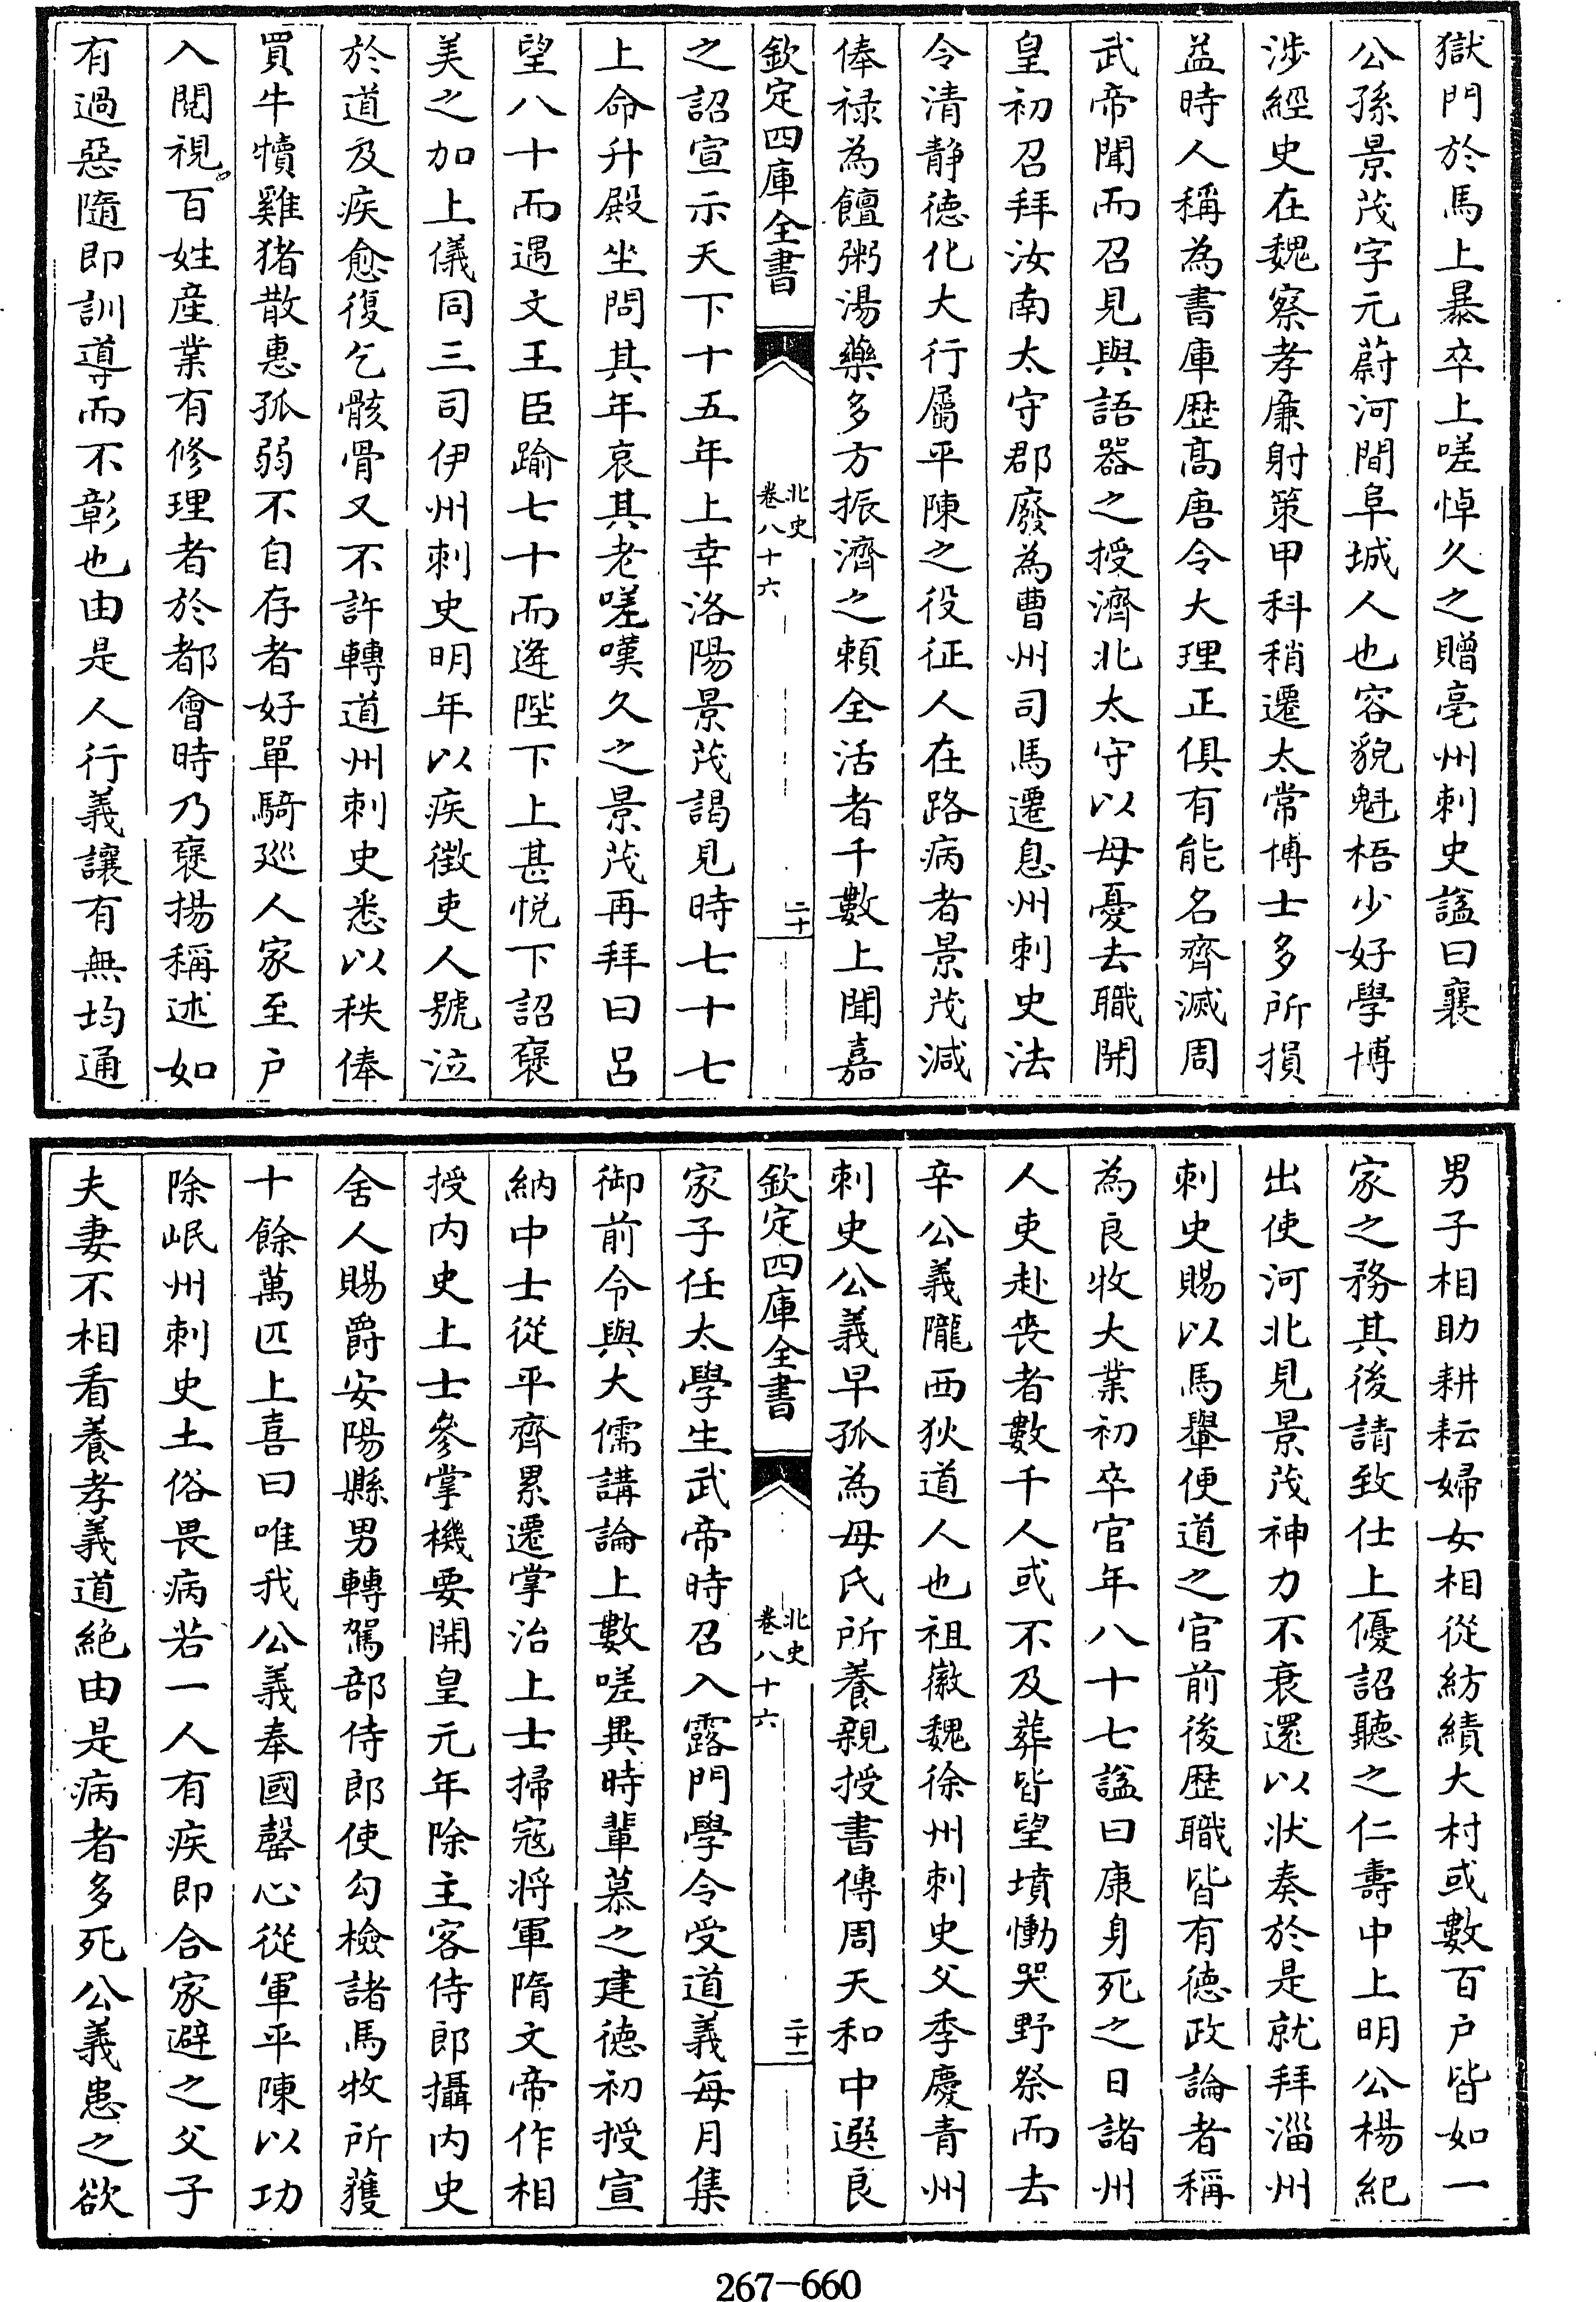 獄門於馬上暴卒上嗟悼久之贈亳州刺史諡曰襄
公孫景茂字元蔚河間阜城人也容貌魁梧少好學博
涉經史在魏察孝廉射策甲科稍遷太常博士多所損
益時人稱為書庫歴髙唐令大理正俱有能名齊滅周
武帝聞而召見與語器之授濟北太守以母憂去職開
皇初召拜汝南太守郡廢為曹州司馬遷息州刺史法
令清静徳化大行屬平陳之役征人在路病者景茂減
俸禄為饘粥湯藥多方振濟之頼全活者千數上聞嘉
欽定四庫全書
北史
卷八十六
二十
之詔宣示天下十五年上幸洛陽景茂謁見時七十七
上命升殿坐問其年哀其老嗟嘆久之景茂再拜曰呂
望八十而遇文王臣踰七十而逢陛下上甚悦下詔褒
美之加上儀同三司伊州刺史明年以疾徴吏人號泣
於道及疾愈復乞骸骨又不許轉道州刺史悉以秩俸
買牛犢雞猪散惠孤弱不自存者好單騎廵人家至户
入閲視百姓産業有修理者於都會時乃褒揚稱述如
有過惡隨即訓導而不彰也由是人行義讓有無均通
男子相助耕耘婦女相從紡績大村或數百户皆如一
家之務其後請致仕上優詔聽之仁壽中上明公楊紀
出使河北見景茂神力不衰還以狀奏於是就拜淄州
刺史賜以馬轝便道之官前後歴職皆有徳政論者稱
為良牧大業初卒官年八十七諡曰康身死之日諸州
人吏赴喪者數千人或不及葬皆望墳慟哭野祭而去
辛公義隴西狄道人也祖徽魏徐州刺史父季慶青州
刺史公義早孤為母氏所養親授書傳周天和中選良
欽定四庫全書
北史
卷八十六
二十一
家子任太學生武帝時召入露門學令受道義毎月集
御前令與大儒講論上數嗟異時輩慕之建德初授宣
納中士從平齊累遷掌治上士掃寇將軍隋文帝作相
授内史上士參掌機要開皇元年除主客侍郎攝内史
舍人賜爵安陽縣男轉駕部侍郎使勾檢諸馬牧所獲
十餘萬匹上喜曰唯我公義奉國罄心從軍平陳以功
除岷州刺史土俗畏病若一人有疾即合家避之父子
夫妻不相看養孝義道絶由是病者多死公義患之欲
267-660